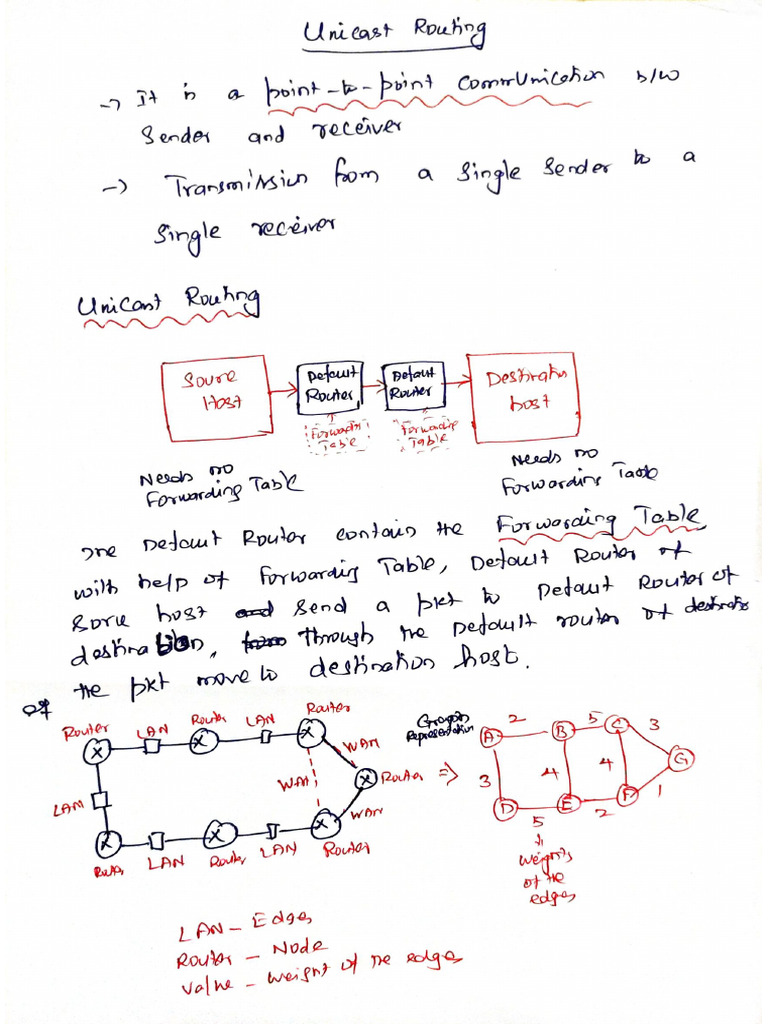 Unicast Routing
-> It is a point-to-point communication b/w
Sender and receiver
-> Transmission from a single sender to a
single receiver
Unicast Routing
Soure Host
Default Router
Default Router
Destination host
Forwarding Table
Forwarding Table
Needs no
Forwarding Table
Needs no
Forwarding Table
The Default Router contain the Forwarding Table
with help of Forwarding Table, Default Router of
Sorce host send a pkt to Default Router of
destination, through the Default router of destination
the pkt move to destination host.
Router LAN Router LAN Router
WAN
WAN
Router
LAN
WAN
Router LAN Router LAN Router
=>
Graph
Representation
A 2 B 5 C 3
3 4 4 G
D 5 E 2 F 1
weights
of the
edges
LAN - Edges
Router - Node
Value - weight of the edges